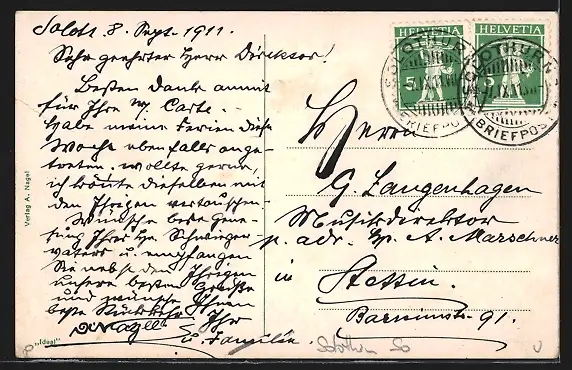 Soloth. 8. Sept. 1911.
Sehr geehrter Herr Direktor!
Besten Dank
für Ihre w. Carte. -
Habe meine Ferien diese
Woche ebenfalls ange-
treten, wollte gerne,
ich könnte dieselben mit
den Ihrigen vertauschen -
Wünsche beste Gene-
sung Ihres Hn. Schwieger-
vaters u. empfangen
Sie nebst den Ihrigen
unsere besten Grüsse
und wünsche Ihnen
beste Rückkehr Ihr
u. Familie
HELVETIA
HELVETIA
5
5
SOLOTHURN
BRIEFPOST
SOLOTHURN
BRIEFPOST
Herrn
G. Langenhagen
Musikdirektor
p. adr. A. Marschner
in Stettin.
Barnimstr. 91.
Verlag A. Nagel
„Ideal"
Solothurn So